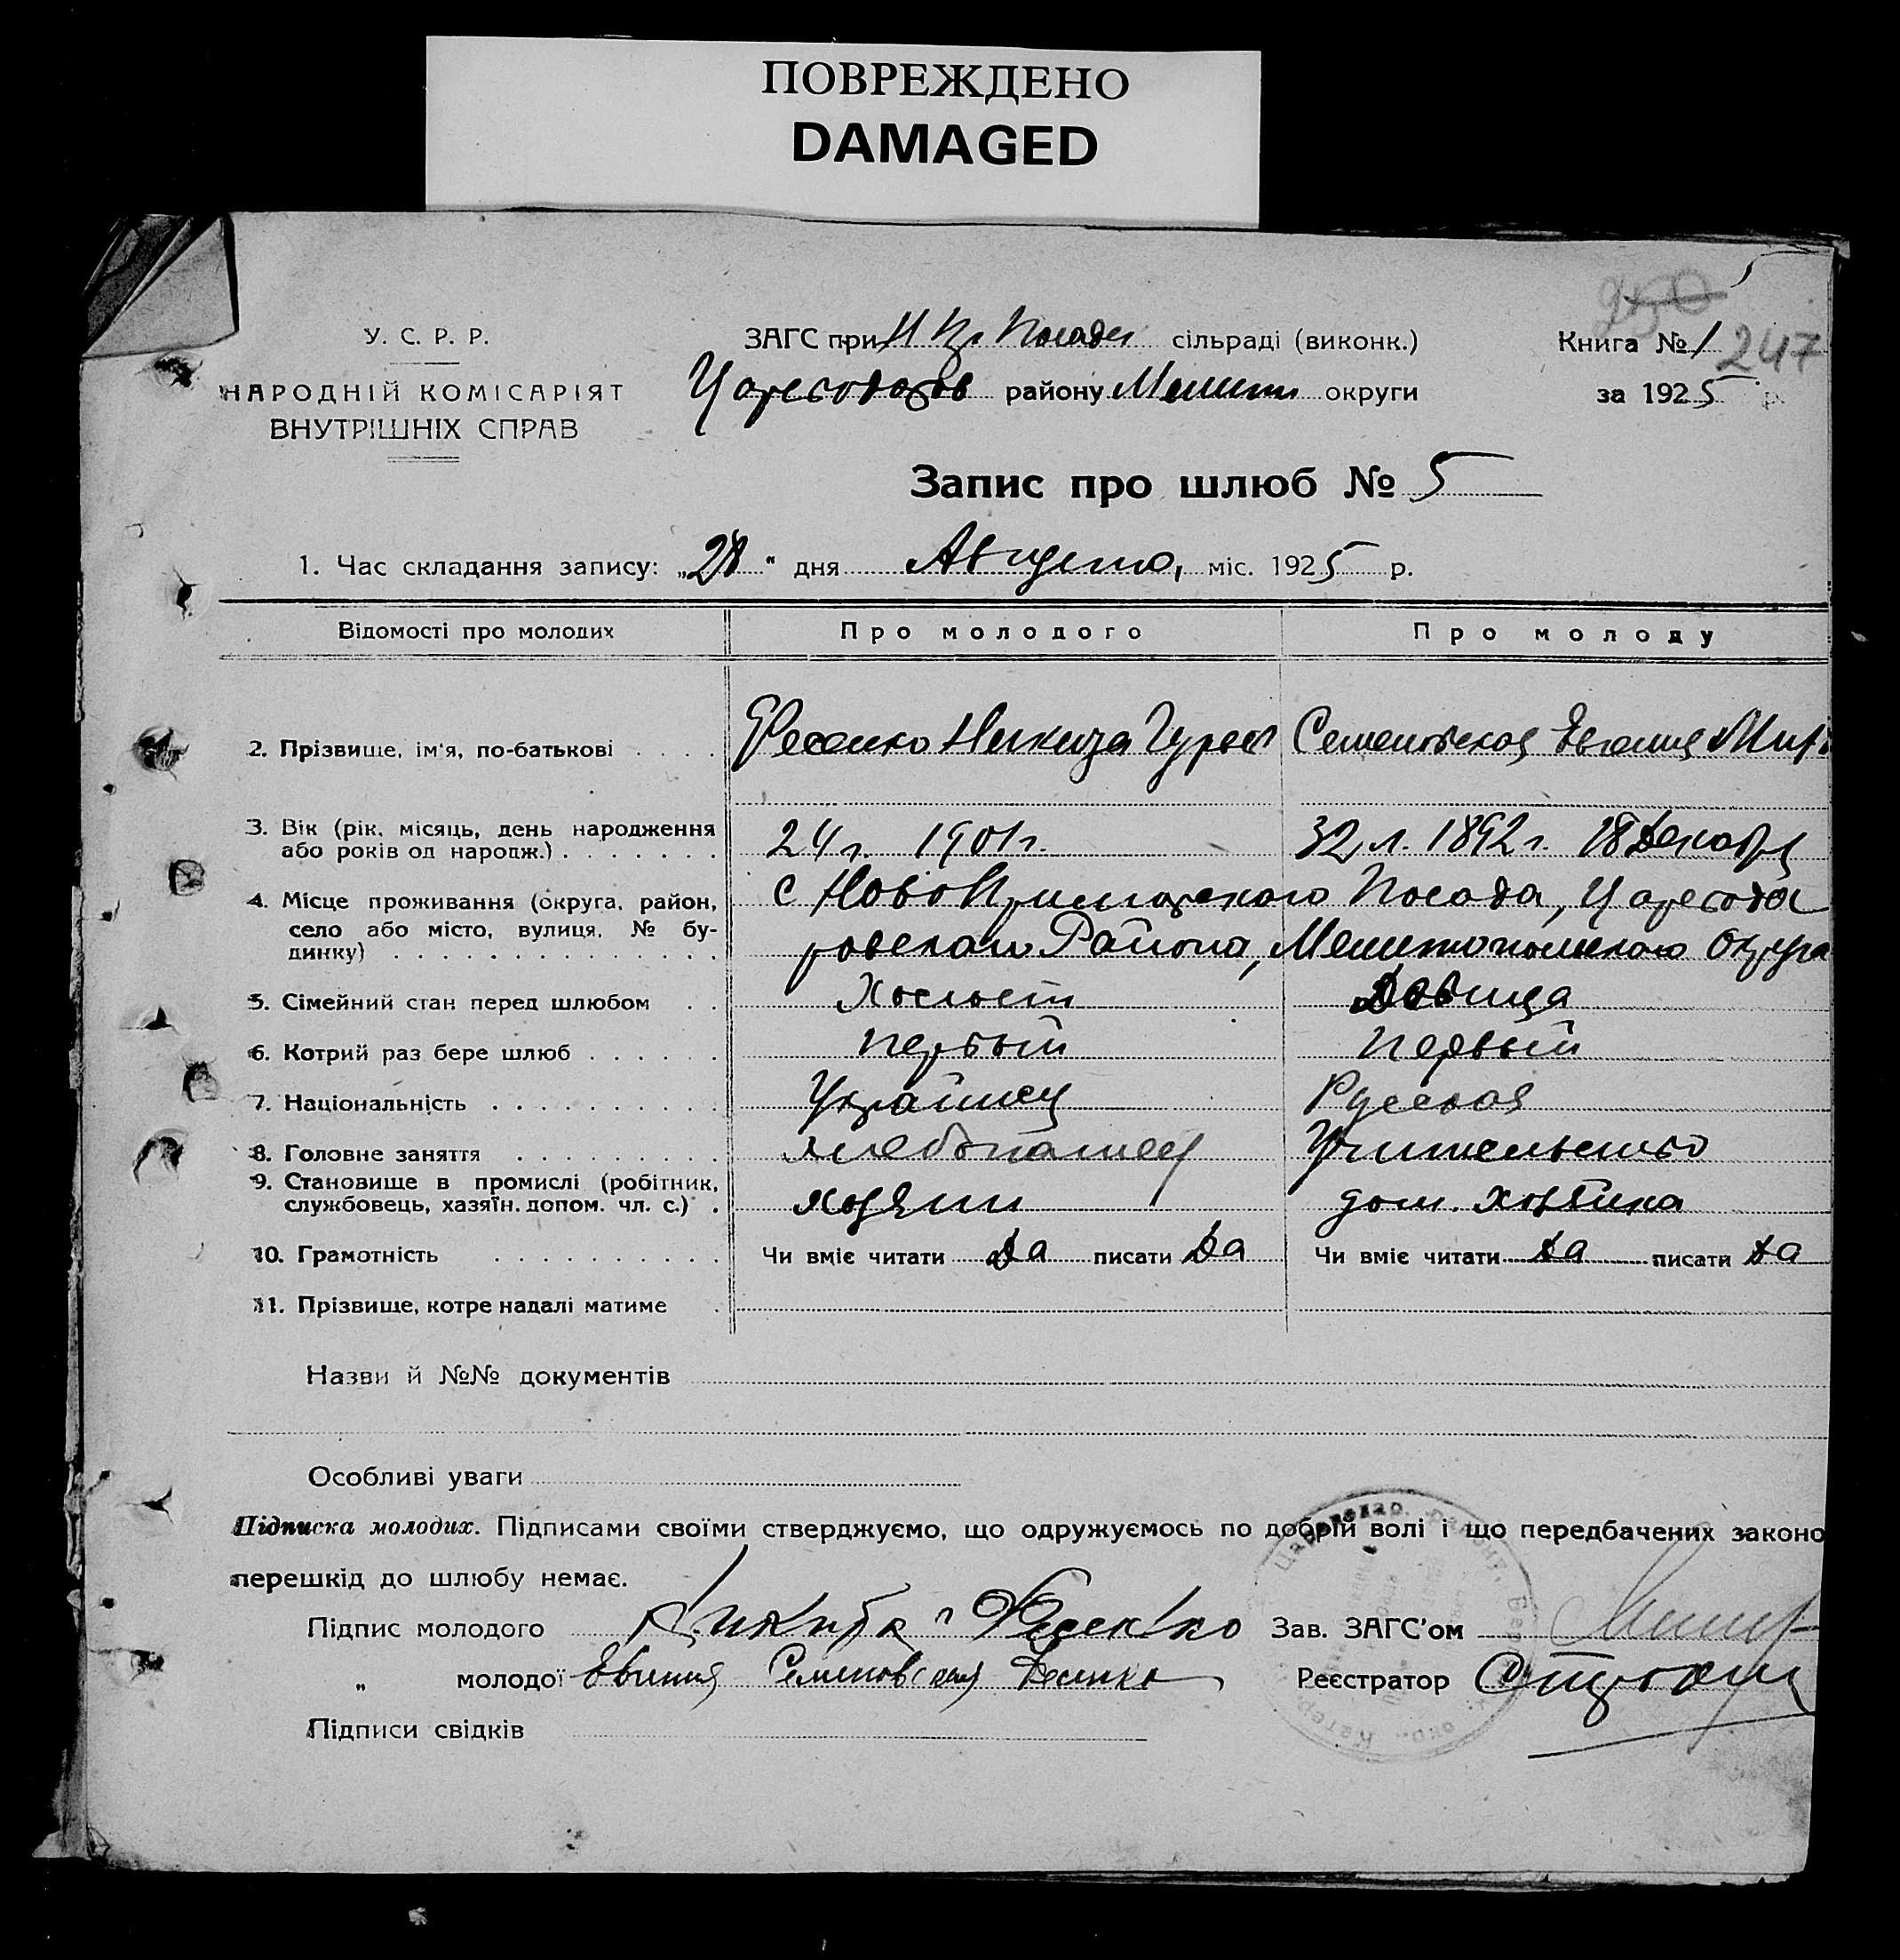 ПОВРЕЖДЕНО
DAMAGED
5
250
У. С. Р. Р.
ЗАГС при Н Пр Посаде сільраді (виконк.)
Книга № 1 247
НАРОДНІЙ КОМІСАРІЯТ
ВНУТРІШНІХ СПРАВ
Царегодаров району Мелит округи
за 1925 р.
Запис про шлюб № 5
1. Час складання запису: „28" дня Августа, міс. 1925 р.
Відомості про молодих Про молодого Про молоду
2. Прізвище, ім'я, по-батькові . . . . Фесенко Никита Гурьев Семеновская Евгения
3. Вік (рік, місяць, день народження
або років од народж.) . . . . . . . 24 г. 1901 г. 32 л. 1892 г. 18 Декабря
4. Місце проживання (округа, район,
село або місто, вулиця, № бу-
динку) . . . . . . . . . . . . . .
с Ново Приморского Посада, Царегода
ровского Района, Мелитопольского Округа
5. Сімейний стан перед шлюбом . . Холост Девица
6. Котрий раз бере шлюб . . . . . . первый первый
7. Національність . . . . . . . . . . Украинец Русская
8. Головне заняття . . . . . . . . . хлебопашец Учительство
9. Становище в промислі (робітник,
службовець, хазяїн. допом. чл. с.) . хозяин дом. хозяйка
10. Грамотність . . . . . . . . . . Чи вміє читати да писати да Чи вміє читати да писати да
11. Прізвище, котре надалі матиме .
Назви й №№ документів
Особливі уваги
Підписка молодих. Підписами своїми стверджуємо, що одружуємось по добрій волі і що передбачених законо
перешкід до шлюбу немає.
Підпис молодого Никита Г Фесенко Зав. ЗАГС'ом
„ молодої Евгения Семеновская Фесенко Реєстратор
Підписи свідків